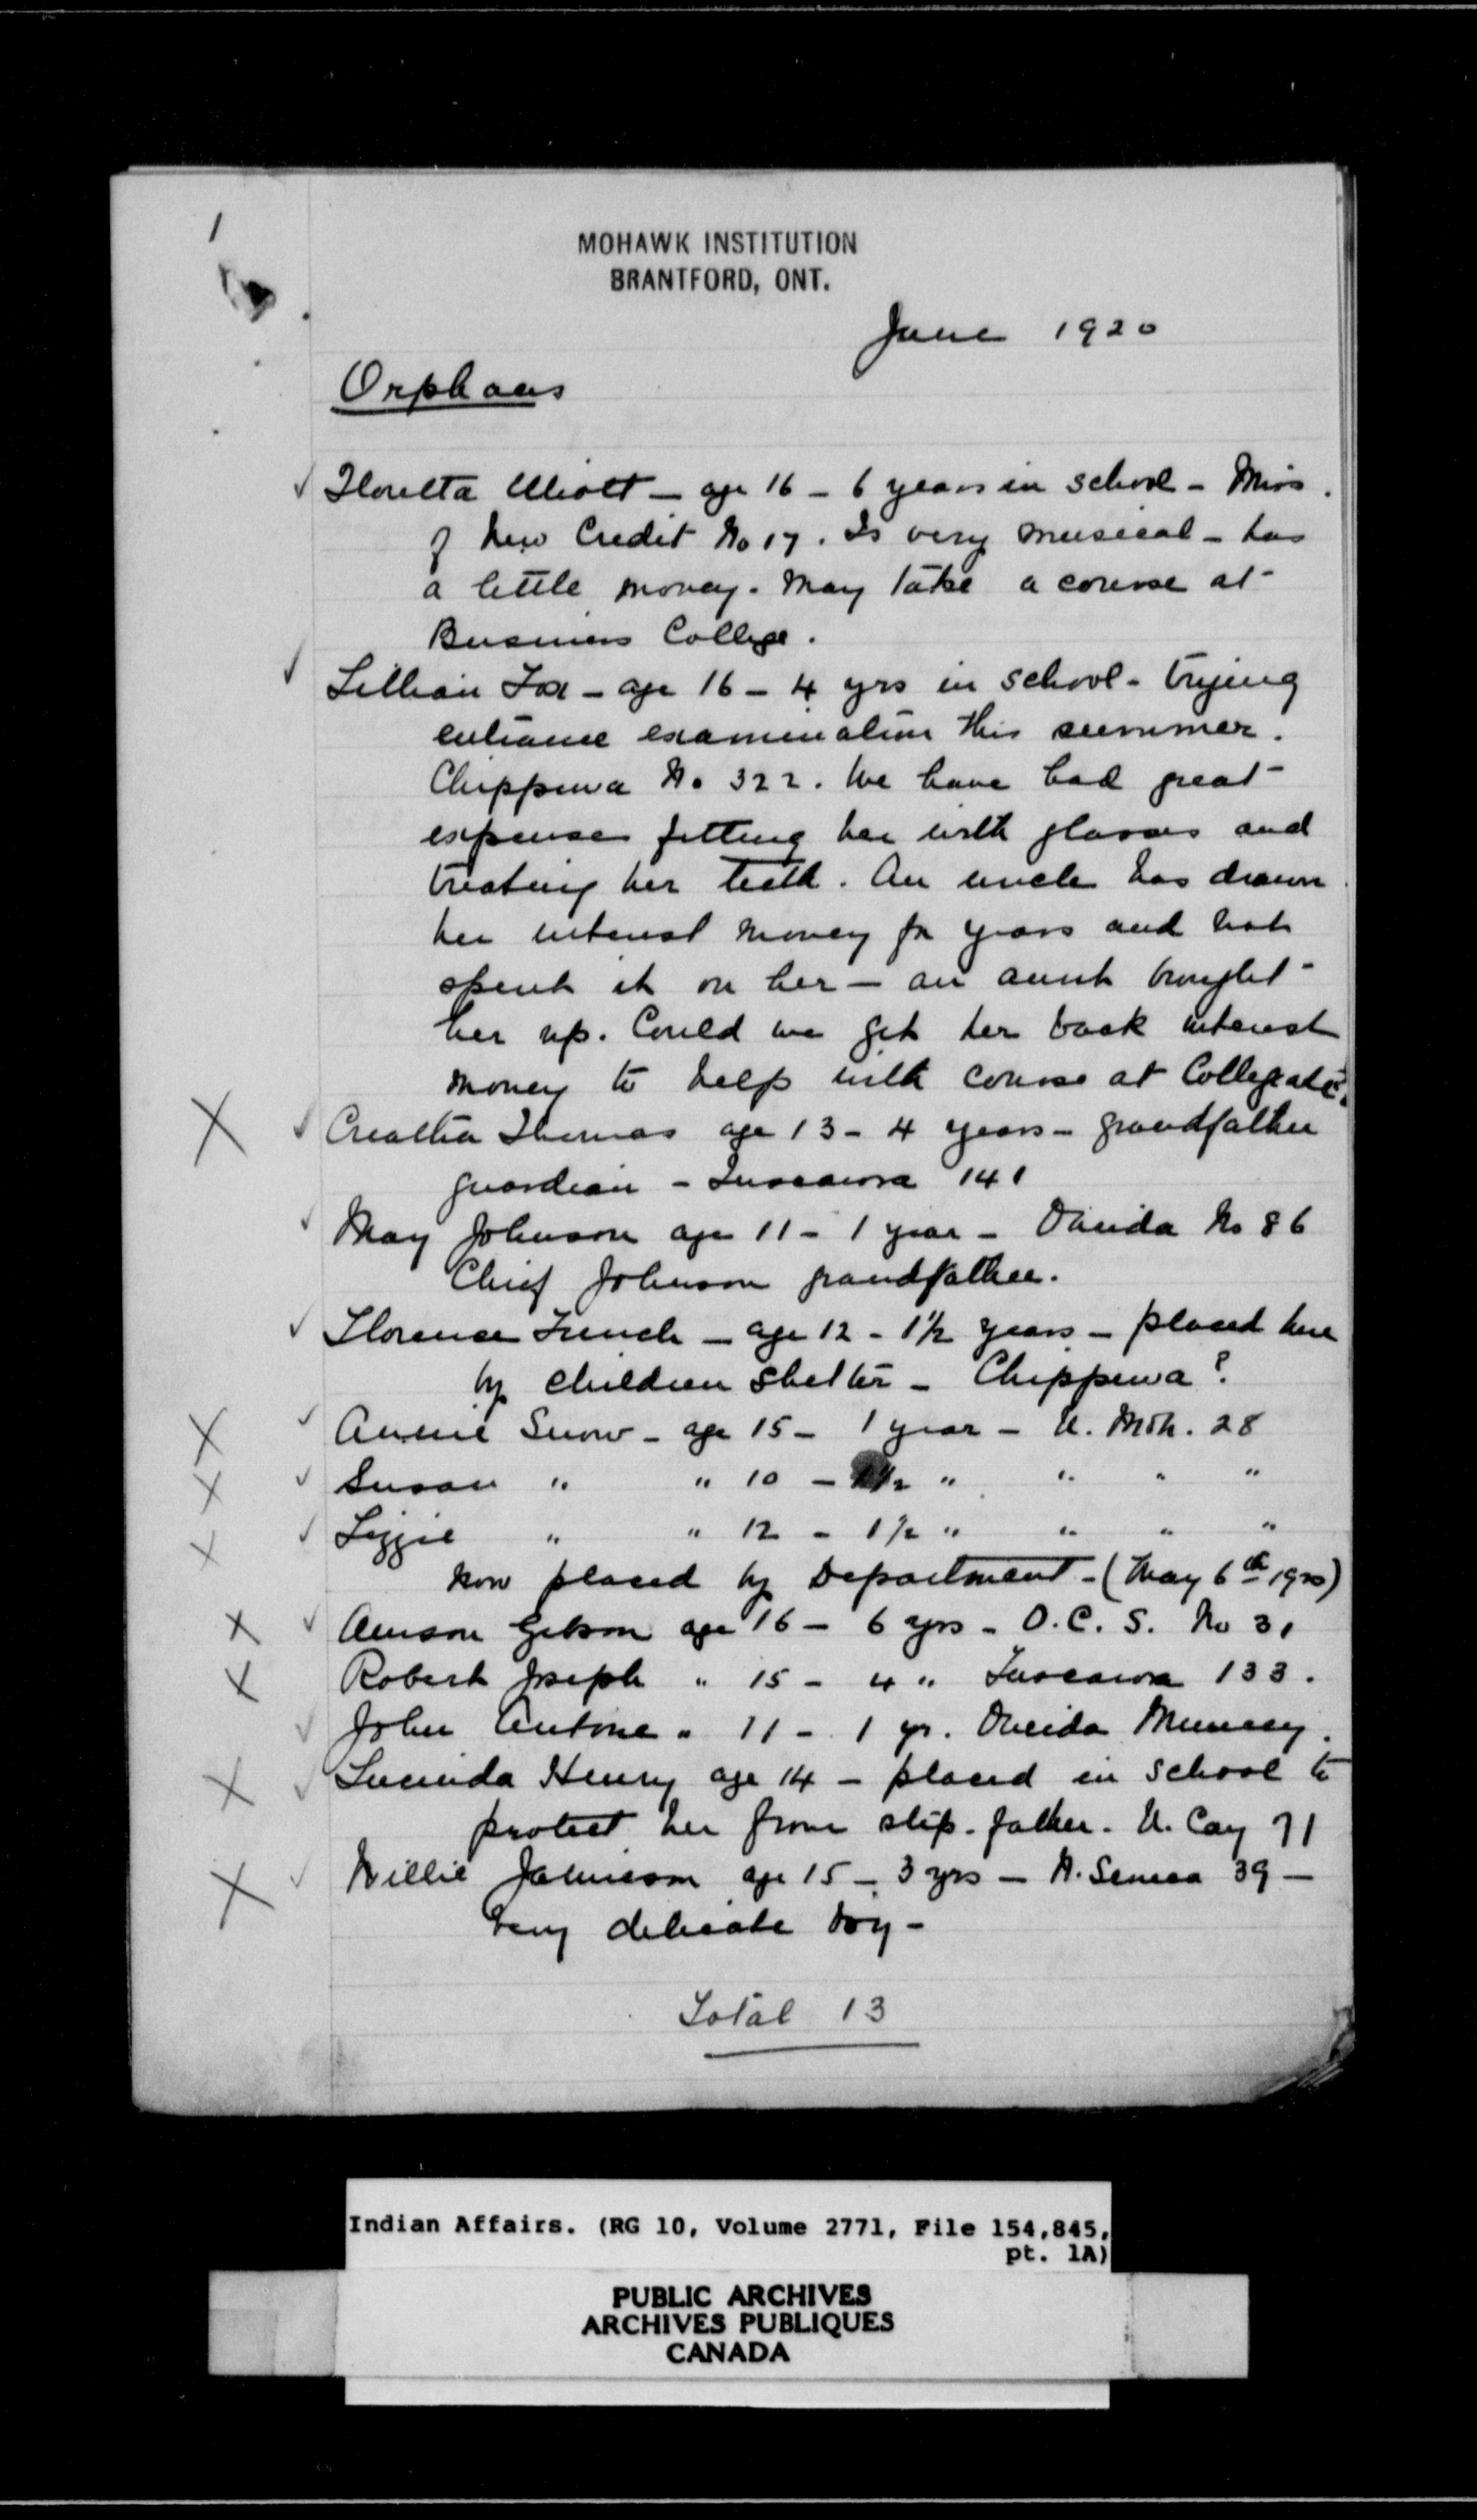 1
MOHAWK INSTITUTION
BRANTFORD, ONT.
June 1920
Orphans
✓ Floretta Elliott — age 16 – 6 years in school – Miss.
of New Credit No 17. Is very musical – has
a little money. May take a course at
Business College.
✓ Lillian Fox – age 16 – 4 yrs in school – trying
entrance examination this summer.
Chippewa No 322. We have had great
expense fitting her with glasses and
treating her teeth. An uncle has drawn
her interest money for years and not
spent it on her – an aunt brought
her up. Could we get her back interest
money to help with course at Collegiate.
X ✓ Thomas age 13 – 4 years – grandfather
guardian – Tuscarora 141
✓ May Johnson age 11 – 1 year – Oneida No 86
Chief Johnson grandfather.
✓ Florence French – age 12 – 1½ years – placed here
by children shelter – Chippewa?
X ✓ Annie Snow – age 15 – 1 year – U. Moh. 28
X ✓ Susan " " 10 – 1½ " " " "
X ✓ Lizzie " " 12 – 1½ " " " "
now placed by Department – (May 6th 1920)
X ✓ Amson Gibson age 16 – 6 yrs – O.C.S. No 31
X Robert Joseph " 15 – 4 " Tuscarora 133.
✓ John Antone " 11 – 1 yr. Oneida Muncey.
X ✓ Lucinda Henry age 14 – placed in school to
protect her from step-father. U. Cay 71
X ✓ Willie Jamieson age 15 – 3 yrs – N. Seneca 39 –
Very delicate boy –
Total 13
Indian Affairs. (RG 10, Volume 2771, File 154,845,
pt. 1A)
PUBLIC ARCHIVES
ARCHIVES PUBLIQUES
CANADA